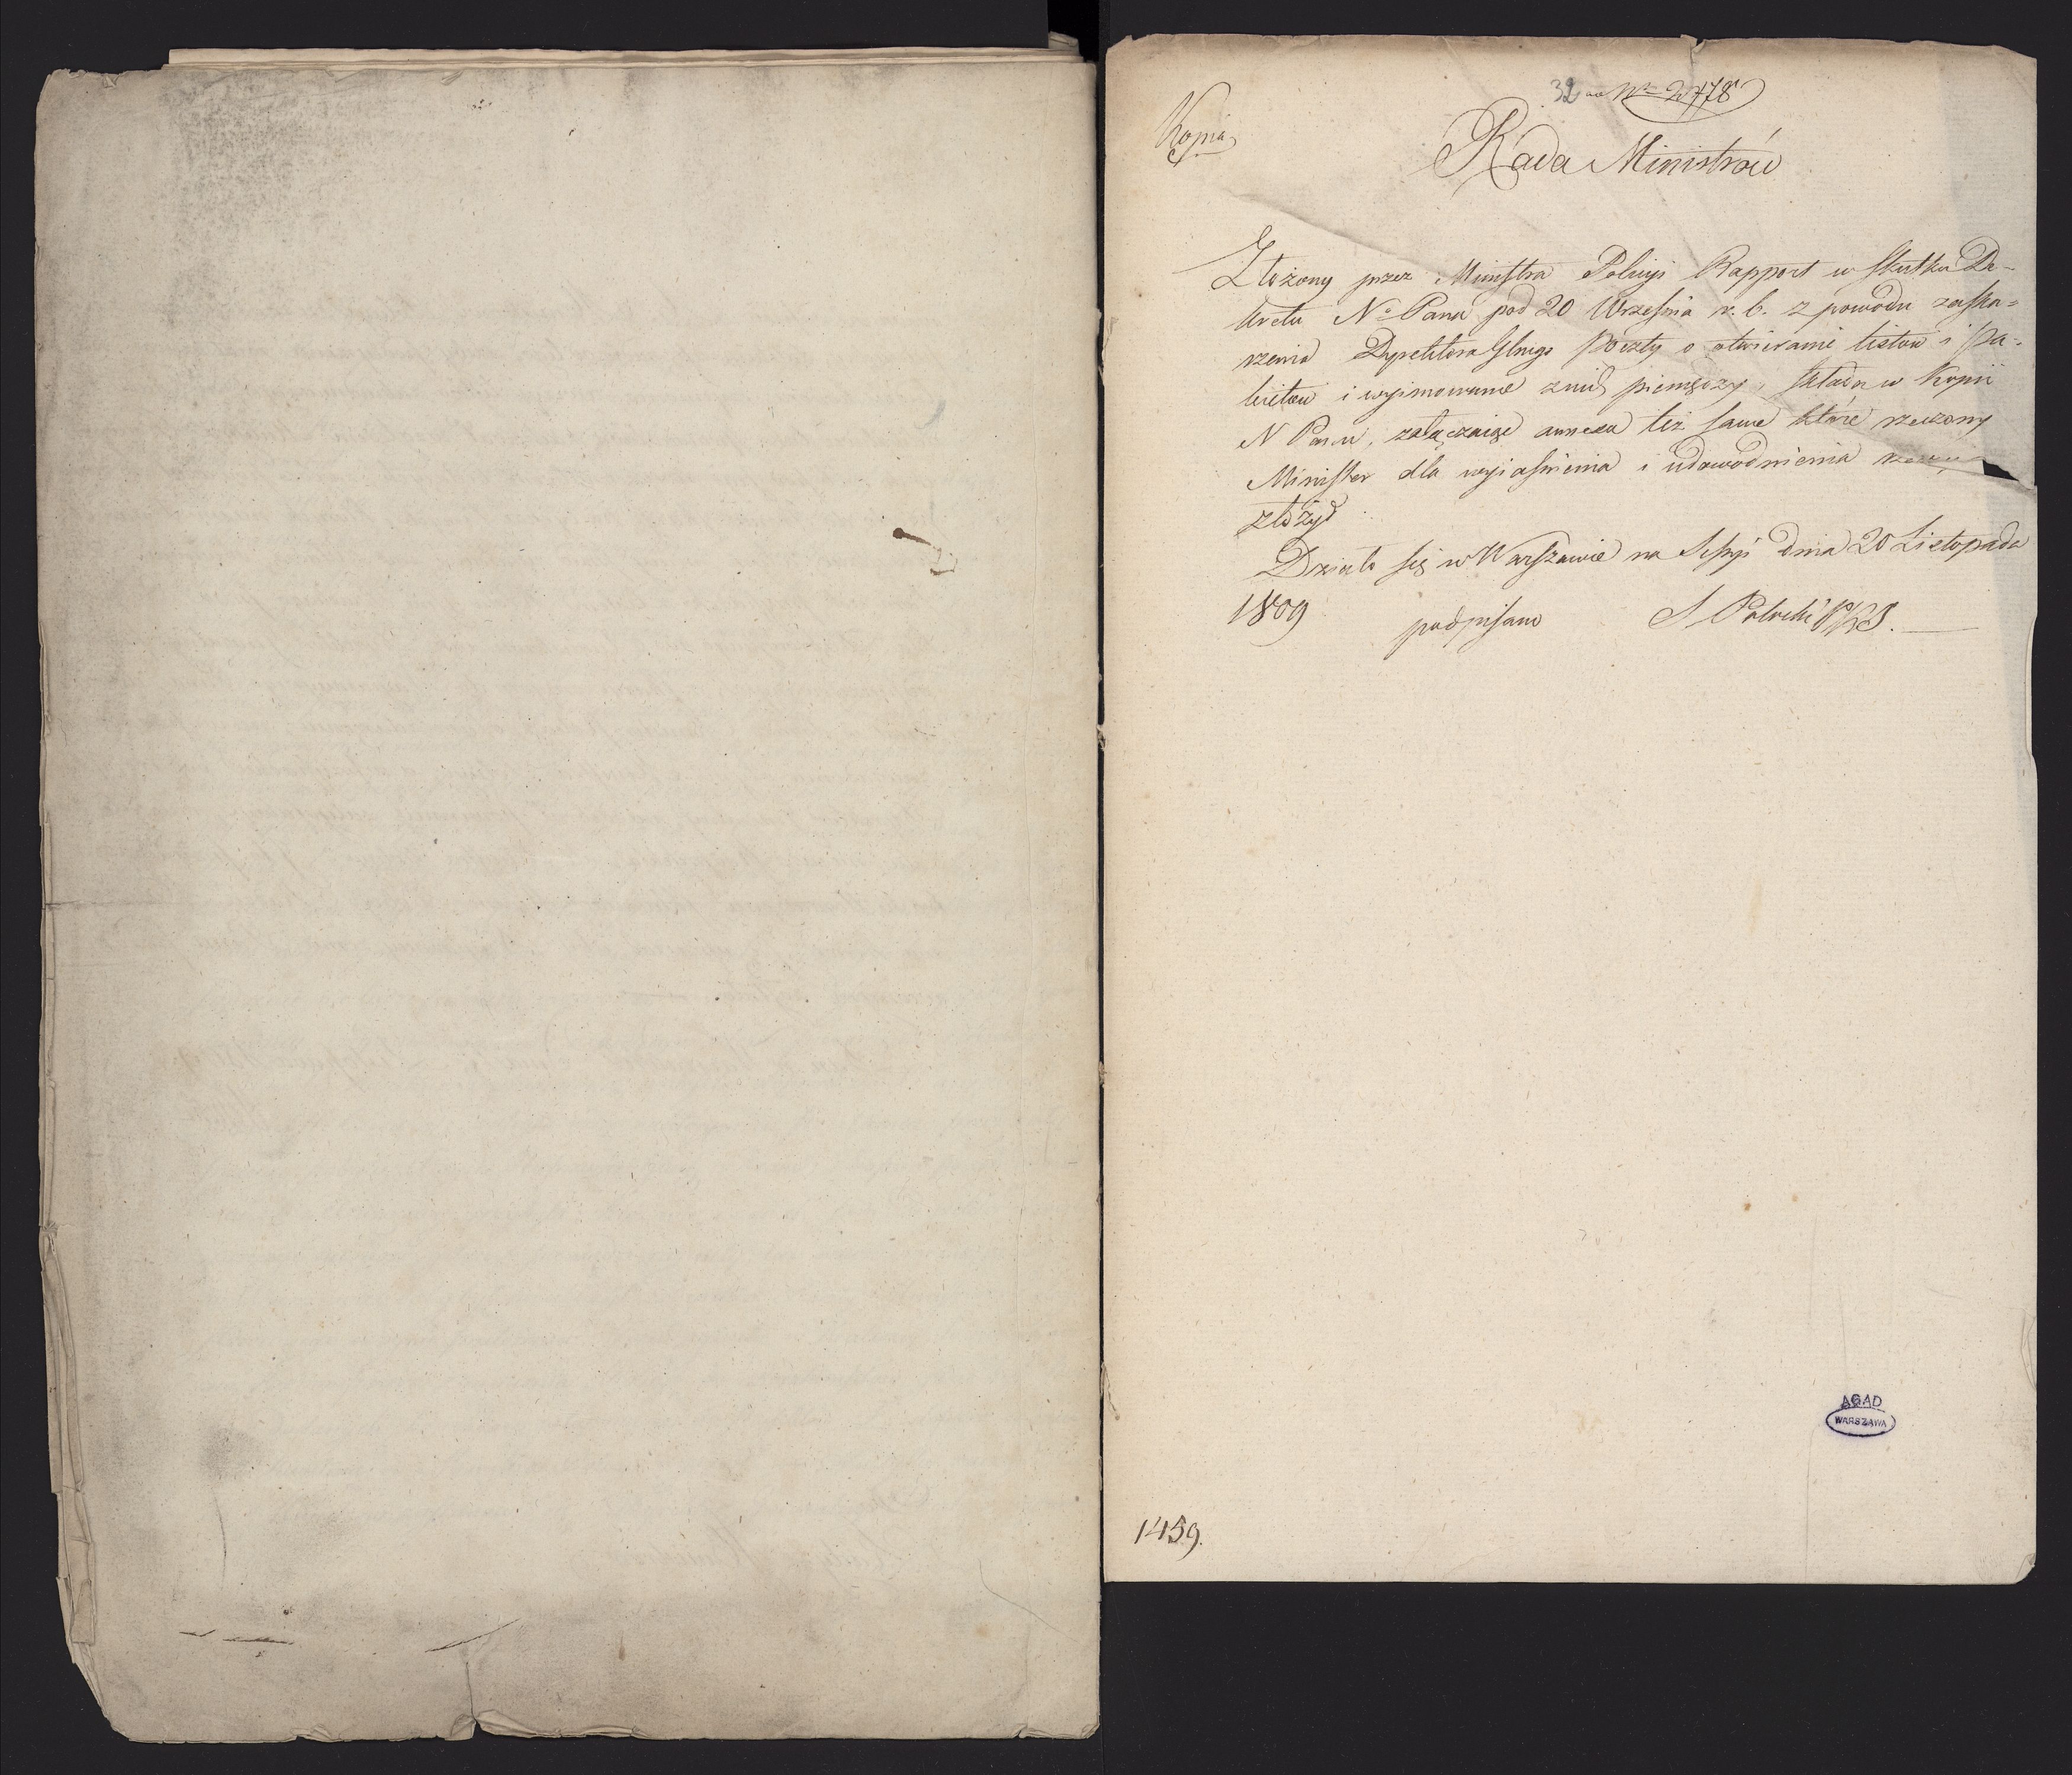 32 ad No 2478
Kopia
Rada Ministrów
Złożony przez Ministra Policyi Rapport w skutku De-
kretu No Pana pod 20 Września r. b. z powodu zaska-
rzenia Dyrektora Głngo Poczty o otwieranie listow i Pa-
kietow i wyimowanie znich pieniędzy, składa w Kopii
N Panu, załączaiąc annexa też same które rzeczony
Minister dla wyiaśnienia i udowodnienia rzeczy
złożył
Działo się w Warszawie na Sessyi dnia 20 Listopada
1809 podpisano S Potocki PRS.
AGAD
WARSZAWA
1459.